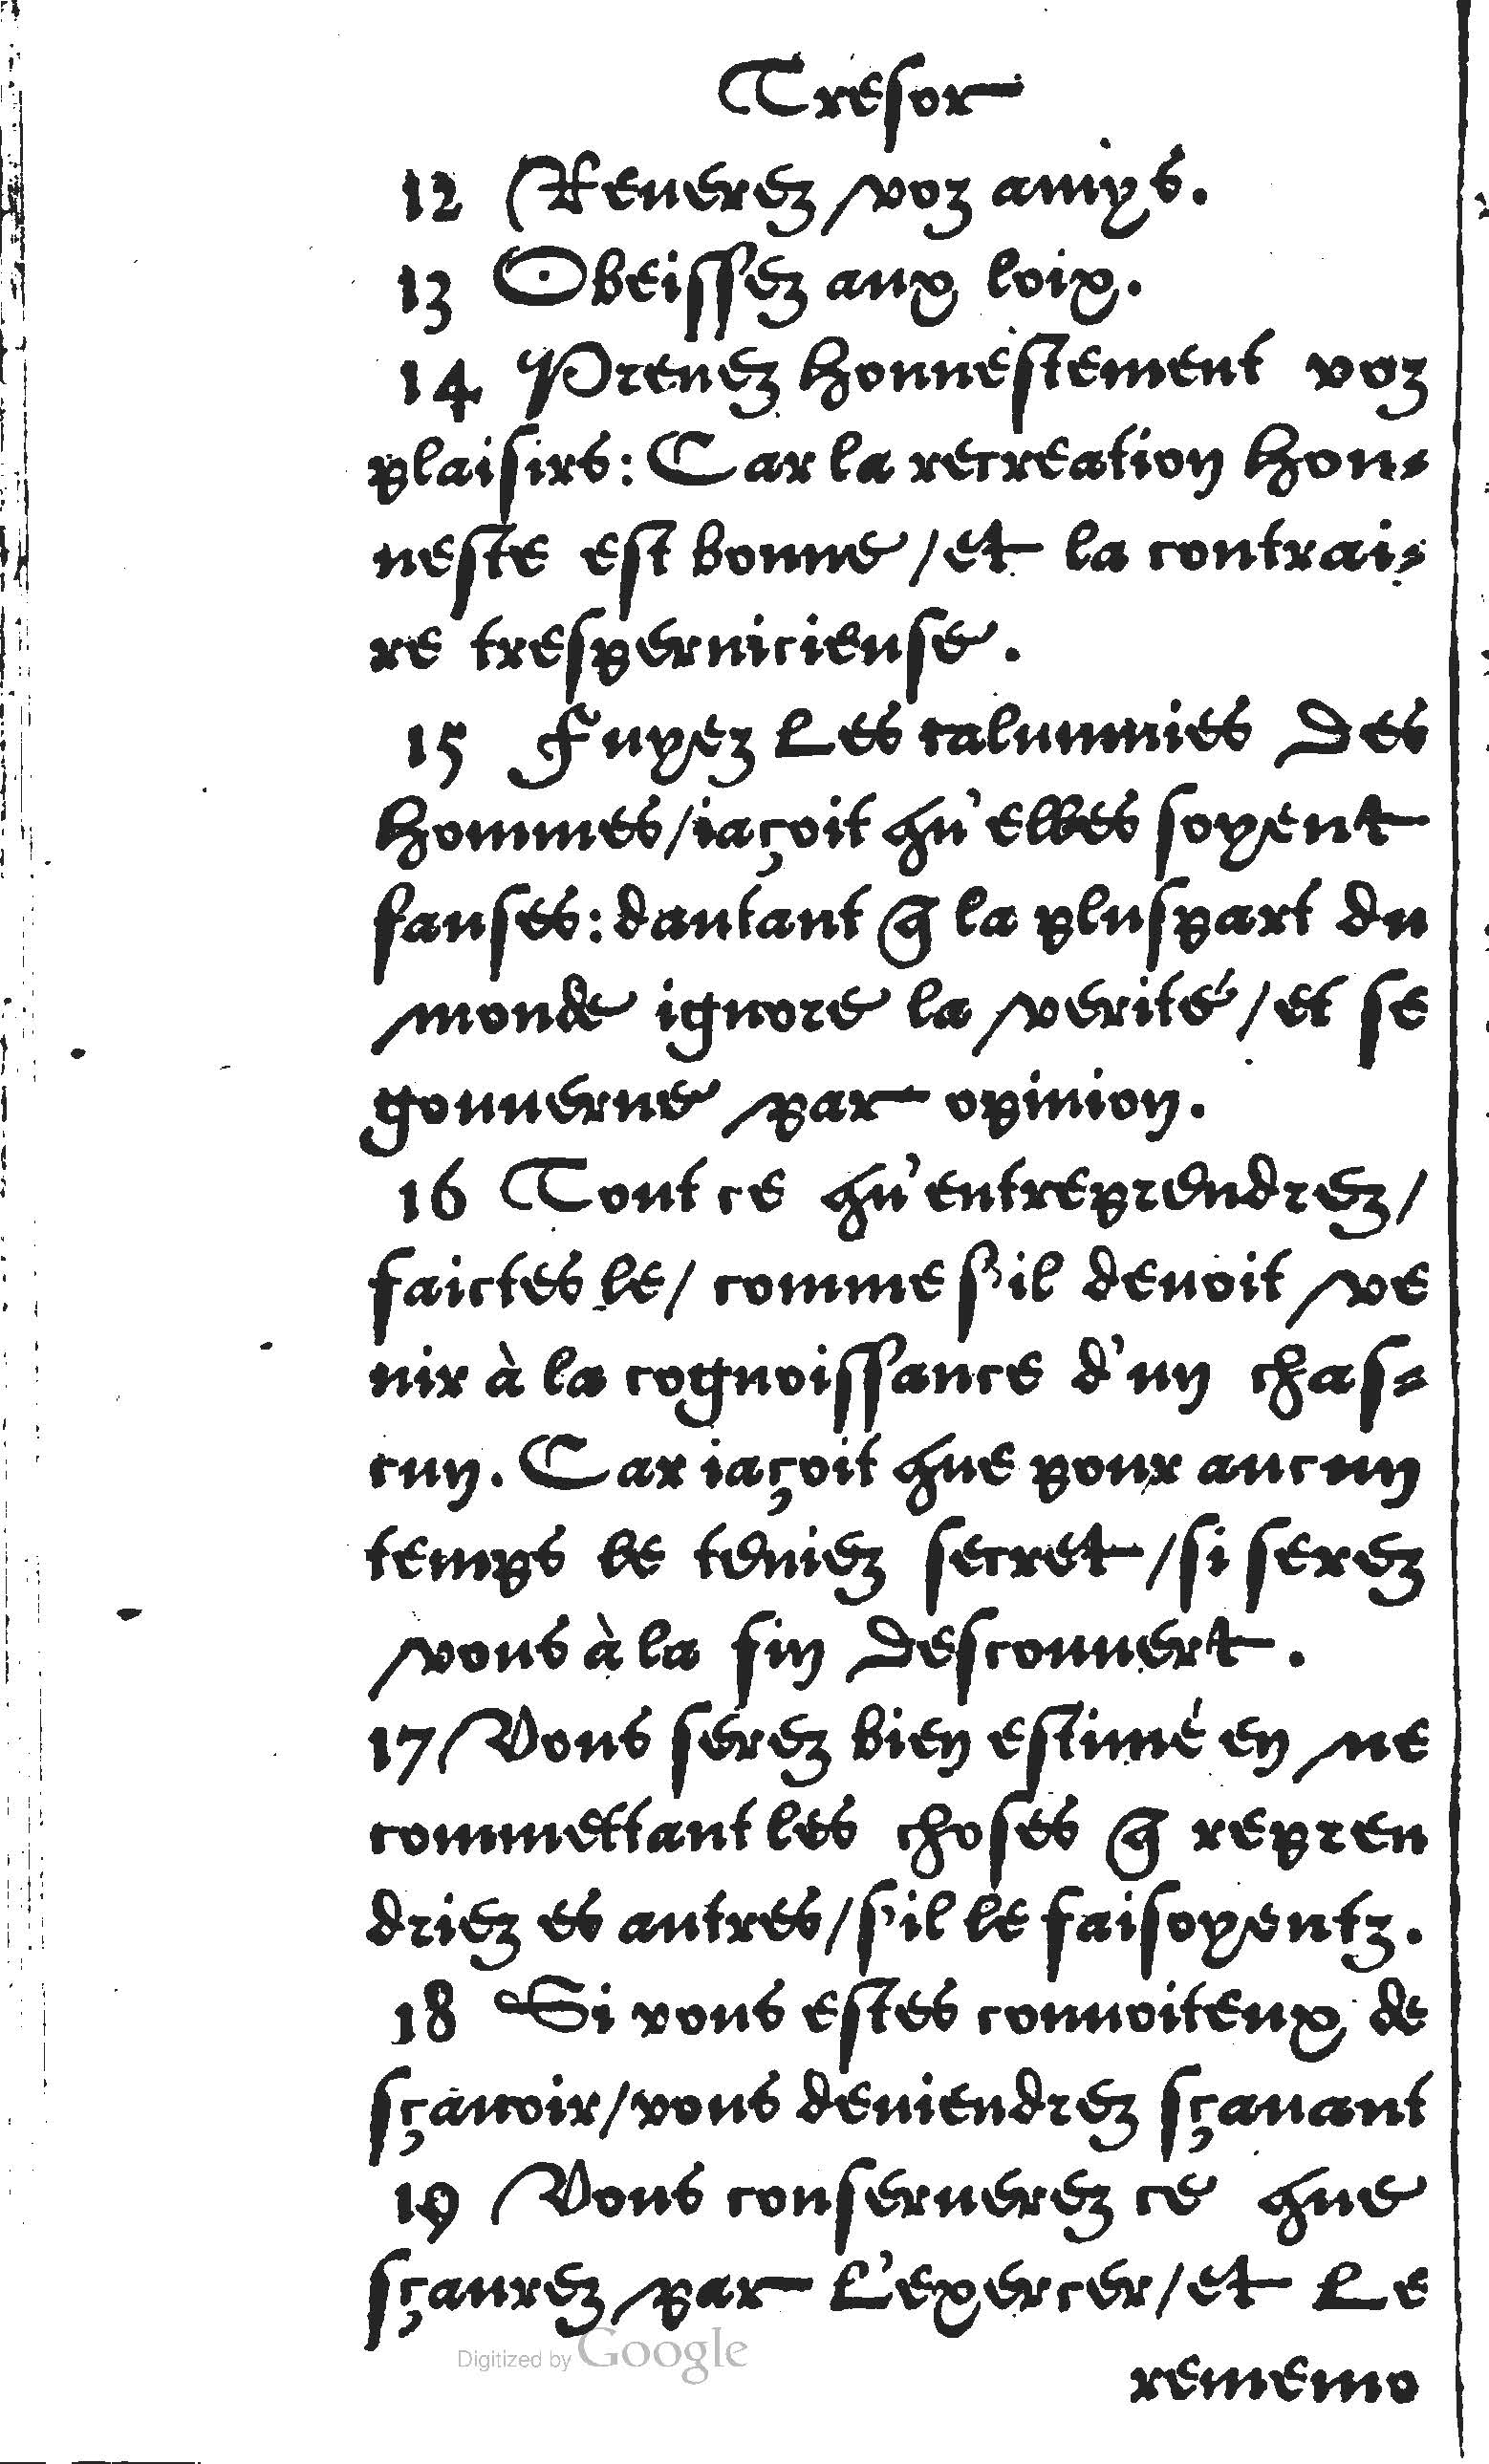 Tresor
12 Reuerez voz amys.
13 Obeissez aux loix.
14 Prenez honnestement voz
plaisirs: Car la recreation hon-
neste est bonne / et la contrai-
re trespernicieuse.
15 Fuyez les calumnies des
hommes / iaçoit qu'elles soyent
fauses: dautant q̃ la pluspart du
monde ignore la verité / et se
gouuerne par opinion.
16 Tout ce qu'entreprendrez /
faictes le / comme s'il deuoit ve
nir à la cognoissance d'un chas-
cun. Car iaçoit que pour aucun
temps le teniez secret / si serez
vous à la fin descouuert.
17 Vous serez bien estimé en ne
commettant les choses q̃ repren
driez es autres / s'il le faisoyentz.
18 Si vous estes conuoiteux de
sçauoir / vous deuiendrez sçauant
19 Vous conseruerez ce que
sçaurez par l'exercer / et le
rememo
Digitized by Google